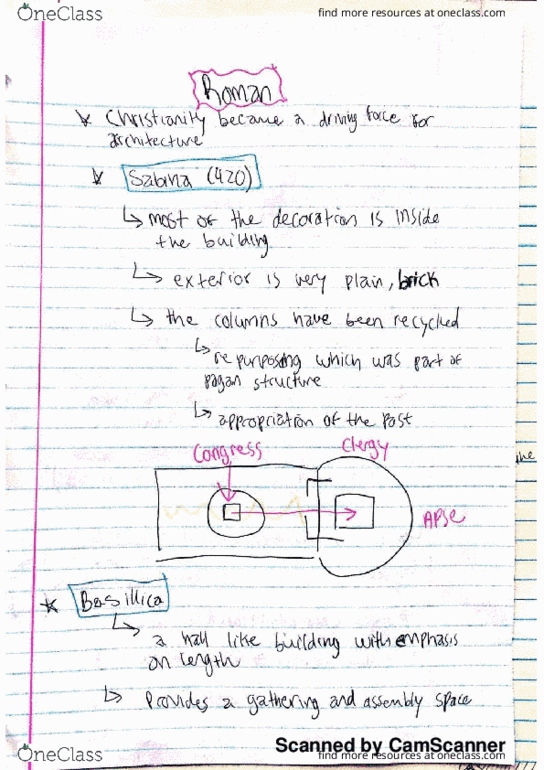 OneClass
find more resources at oneclass.com
Roman
Christianity became a driving force for
architecture
Sabina (420)
↳ most of the decoration is inside
the building
↳ exterior is very plain, brick
↳ the columns have been recycled
↳ repurposing which was part of
pagan structure
↳ appropriation of the past
Congress
Clergy
the
APSE
* Basillica
↳ a hall like building with emphasis
on length
↳ Provides a gathering and assembly space
Scanned by CamScanner
OneClass
find more resources at oneclass.com